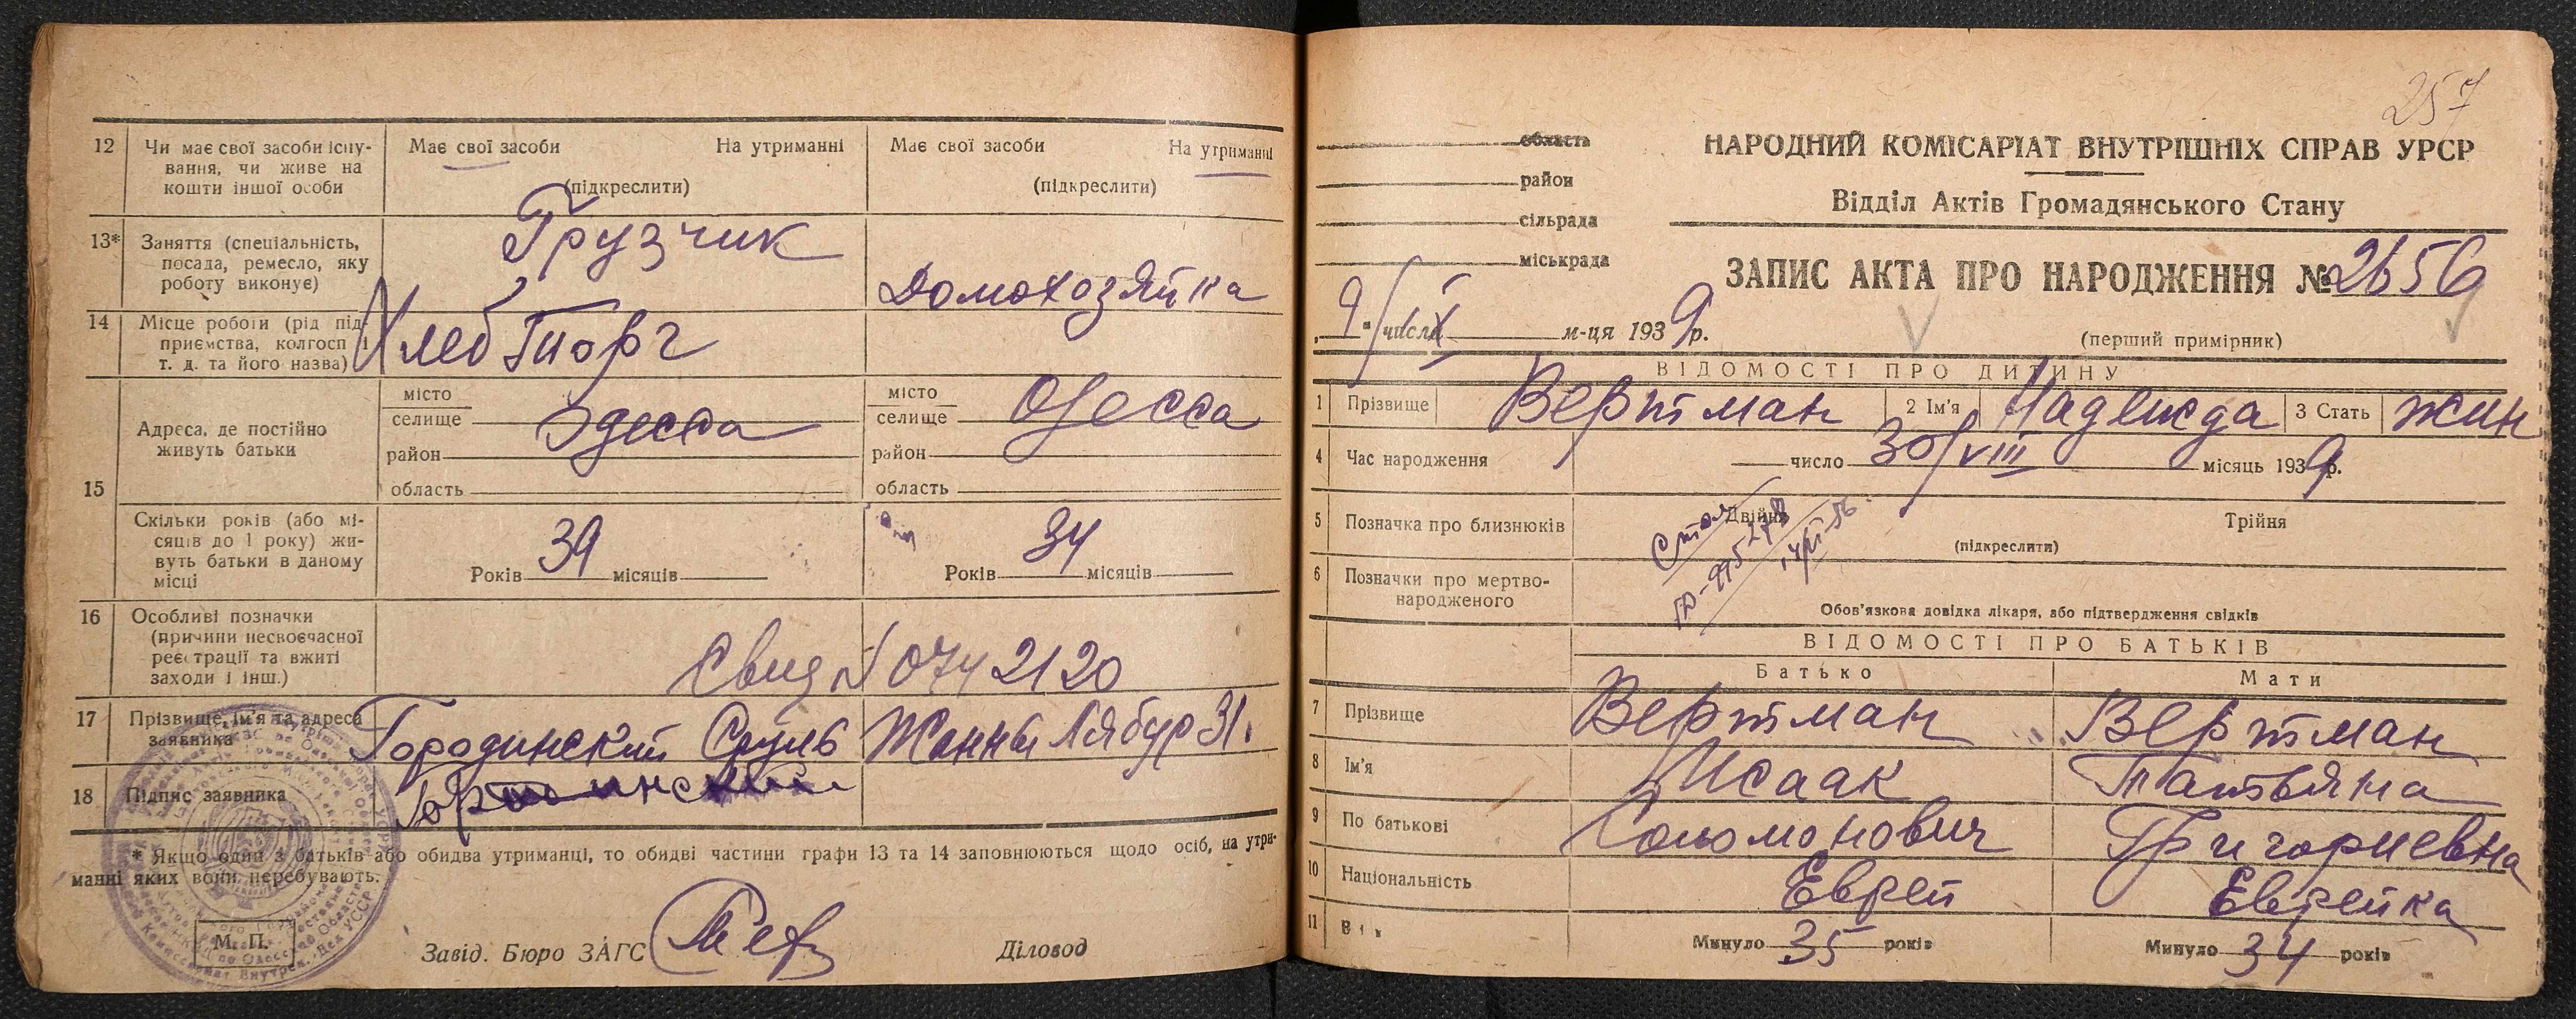 12 Чи має свої засоби існу-
вання, чи живе на
кошти іншої особи
Має свої засоби На утриманні
(підкреслити)
Має свої засоби На утриманні
(підкреслити)
13* Заняття (спеціальність,
посада, ремесло, яку
роботу виконує)
Грузчик
Домохозяйка
14 Місце роботи (рід під-
приємства, колгосп і
т. д. та його назва)
Хлеб Торг
15 Адреса, де постійно
живуть батьки
місто
селище Одесса
район
область
місто
селище Одесса
район
область
Скільки років (або мі-
сяців до 1 року) жи-
вуть батьки в даному
місці
39
Років місяців
34
Років місяців
16 Особливі позначки
(причини несвоєчасної
реєстрації та вжиті
заходи і інш.)
Свид N 0742120
17 Прізвище, ім'я та адреса
заявника
Городинский Сруль Жанны Лябур 31.
18 Підпис заявника
* Якщо один з батьків або обидва утриманці, то обидві частини графи 13 та 14 заповнюються щодо осіб, на утри-
манні яких вони перебувають.
М. П.
Завід. Бюро ЗАГС Діловод
257
область
район
сільрада
міськрада
НАРОДНИЙ КОМІСАРІАТ ВНУТРІШНІХ СПРАВ УРСР
Відділ Актів Громадянського Стану
ЗАПИС АКТА ПРО НАРОДЖЕННЯ № 2656
„9" числа IX м-ця 1939 р.
(перший примірник)
ВІДОМОСТІ ПРО ДИТИНУ
1 Прізвище Вертман 2 Ім'я Надежда 3 Стать жин
4 Час народження число 30/VIII місяць 1939 р.
5 Позначка про близнюків Двійня Трійня
(підкреслити)
6 Позначки про мертво-
народженого
Обов'язкова довідка лікаря, або підтвердження свідків
ВІДОМОСТІ ПРО БАТЬКІВ
Батько Мати
7 Прізвище Вертман Вертман
8 Ім'я Исаак Татьяна
9 По батькові Соломонович Григориевна
10 Національність Еврей Еврейка
11 Вік Минуло 35 років Минуло 34 років